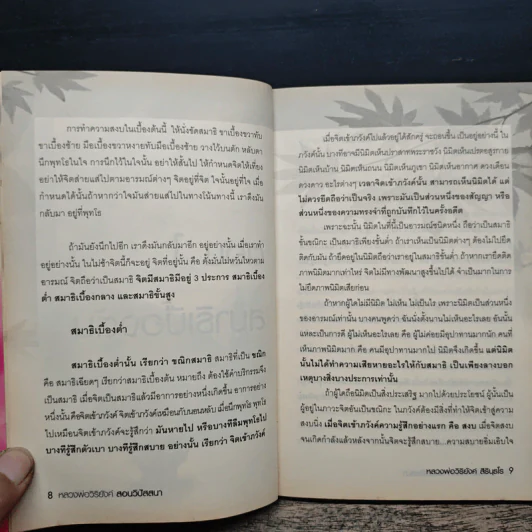 การทำความสงบในเบื้องต้นนี้ ให้นั่งขัดสมาธิ ขาเบื้องขวาทับ
ขาเบื้องซ้าย มือเบื้องขวาหงายทับมือเบื้องซ้าย วางไว้บนตัก หลับตา
นึกพุทโธในใจ การนึกไว้ในใจนั้น อย่าให้สั้นไป ให้กำหนดจิตให้เที่ยง
อย่าให้จิตส่ายแส่ไปตามอารมณ์ต่างๆ จิตอยู่ที่จิต ใจนั้นอยู่ที่ใจ เมื่อ
กำหนดได้นั้นถ้าหากว่าใจมันส่ายแส่ไปในทางโน้นทางนี้ เราดึงมัน
กลับมา อยู่ที่พุทโธ
ถ้ามันยังนึกไปอีก เราดึงมันกลับมาอีก อยู่อย่างนั้น เมื่อเราทำ
อยู่อย่างนั้น ในไม่ช้าจิตนี้ก็จะอยู่ จิตที่อยู่นั้น คือ ตั้งมั่นไม่หวั่นไหวตาม
อารมณ์ จิตถือว่าเป็นสมาธิ จิตมีสมาธิมีอยู่ 3 ประการ สมาธิเบื้อง
ต่ำ สมาธิเบื้องกลาง และสมาธิชั้นสูง
สมาธิเบื้องต่ำ
สมาธิเบื้องต่ำนั้น เรียกว่า ขณิกสมาธิ สมาธิที่เป็น ขณิก
คือ สมาธิเฉียดๆ เรียกว่าสมาธิเบื้องต้น หมายถึง ต้องใช้คำบริกรรมจึง
เป็นสมาธิ เมื่อจิตเป็นสมาธิแล้วจะมีอาการอย่างหนึ่งเกิดขึ้น อาการอย่าง
หนึ่งนั้นคือจิตเข้าภวังค์ จิตเข้าภวังค์เหมือนกับนอนหลับ เมื่อนึกพุทโธ พุทโธ
ไปเหมือนจิตเข้าภวังค์จะรู้สึกว่า มันหายไป หรือบางทีลืมพุทโธไป
บางทีรู้สึกตัวเบา บางทีรู้สึกสบาย อย่างนั้น เรียกว่า จิตเข้าภวังค์
8 หลวงพ่อวิริยังค์ สอนวิปัสสนา
เมื่อจิตเข้าภวังค์ไปแล้วอยู่ได้สักครู่ จะถอนขึ้น เป็นอยู่อย่างนี้ ใน
ภวังค์นั้น บางทีอาจมีนิมิตเห็นปราสาทพระราชวัง นิมิตเห็นเปรตอสูรกาย
นิมิตเห็นบ้าน นิมิตเห็นถนน นิมิตเห็นภูเขา นิมิตเห็นอากาศ ดวงเดือน
ดวงดาว อะไรต่างๆ เวลาจิตเข้าภวังค์นั้น สามารถเห็นนิมิตได้ แต่
ไม่ควรยึดถือว่าเป็นจริง เพราะมันเป็นส่วนหนึ่งของสัญญา หรือ
ส่วนหนึ่งของความทรงจำที่ถูกบันทึกไว้ในครั้งอดีต
เพราะฉะนั้น นิมิตในที่นี้เป็นอารมณ์ชนิดหนึ่ง ถือว่าเป็นสมาธิ
ชั้นขณิกะ เป็นสมาธิเพียงชั้นต่ำ ถ้าเราเห็นเป็นนิมิตต่างๆ ต้องไม่ไปยึด
ติดกับมัน ถ้ายึดอยู่ในนิมิตถือว่าเราอยู่ในสมาธิชั้นต่ำอยู่ ถ้าหากเรายึดติด
ภาพนิมิตมากเท่าไหร่ จิตไม่มีทางพัฒนาสูงขึ้นไปได้ จำเป็นมากในการ
ไม่ยึดภาพนิมิตเสียก่อน
ถ้าหากผู้ใดไม่มีนิมิต ไม่เห็น ไม่เป็นไร เพราะนิมิตเป็นส่วนหนึ่ง
ของอารมณ์เท่านั้น บางคนพูดว่า ฉันนั่งตั้งนานไม่เห็นอะไรเลย อันนั้น
แหละเป็นการดี ผู้ไม่เห็นอะไรเลย คือ ผู้ไม่ค่อยมีอุปาทานมากนัก คนที่
เห็นภาพนิมิตมาก คือ คนมีอุปาทานมากไป นิมิตจึงเกิดขึ้น แต่นิมิต
นั้นไม่ได้ทำความเสียหายอะไรให้กับสมาธิ เป็นเพียงลางบอก
เหตุบางสิ่งบางประการเท่านั้น
ถ้าผู้ใดถือนิมิตเป็นสิ่งประเสริฐ มากไปด้วยประโยชน์ ผู้นั้นเป็น
ผู้อยู่ในภาวะจิตอันเป็นขณิกะ ในภวังค์ต้องมีสิ่งที่ทำให้จิตเข้าสู่ความ
สงบนิ่ง เมื่อจิตเข้าภวังค์ความรู้สึกอย่างแรก คือ สงบ เมื่อจิตสงบ
จนเกิดกำลังแล้วหลังจากนั้นจิตจะรู้สึกสบาย...ความสบายอิ่มเอิบใจ
หลวงพ่อวิริยังค์ สิรินฺธโร 9